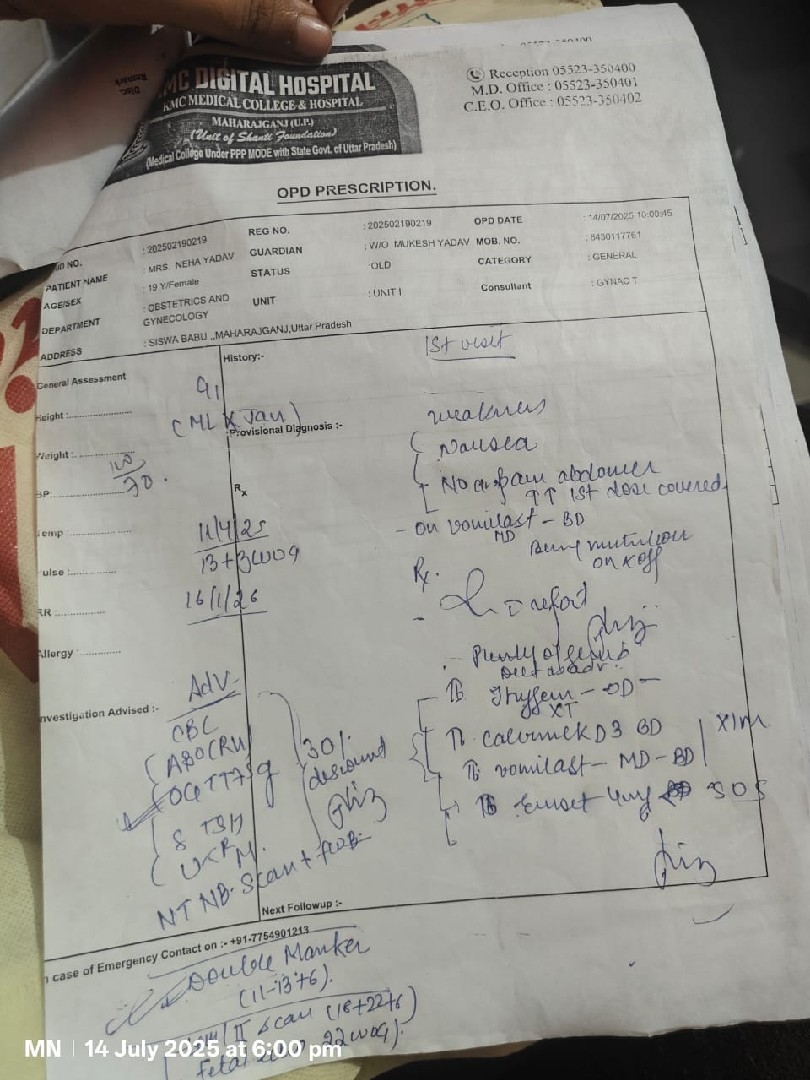 MC DIGITAL HOSPITAL
KMC MEDICAL COLLEGE & HOSPITAL
MAHARAJGANJ (U.P.)
(Unit of Shanti Foundation)
(Medical College Under PPP MODE with State Govt. of Uttar Pradesh)
Reception 05523-350400
M.D. Office : 05523-350401
C.E.O. Office : 05523-350402
OPD PRESCRIPTION.
NO. : 202502190219 REG NO. : 202502190219 OPD DATE : 14/07/2025 10:00:45
PATIENT NAME : MRS. NEHA YADAV GUARDIAN : W/O MUKESH YADAV MOB. NO. : 8430117761
AGE/SEX : 19 Y/Female STATUS : OLD CATEGORY : GENERAL
DEPARTMENT : OBSTETRICS AND GYNECOLOGY UNIT : UNIT I Consultant : GYNAC T
ADDRESS : SISWA BABU ,,MAHARAJGANJ,Uttar Pradesh
General Assessment
History:-
1st visit
G1
Height :
(ML X Jan)
Provisional Diagnosis :-
weakness
Weight :
Nausea
BP
70
Rx
No pain abdomen
↑↑ 1st dose covered
Temp
11/4/25
- On vomilast - BD
MD
13+3 wog
on & off
Pulse :
Rx.
RR
16/1/26
Allergy :
- Plenty of
Diet as adv.
Investigation Advised :-
Adv
Tb - OD -
XT
CBC
ABO(RH)
Tb D3 BD
X1M
OGTT 75g
30%
discount
Tb vomilast - MD - BD
S TSH
Tb Emset 4mg SOS
U R M.
NT NB Scan +
Next Followup :-
In case of Emergency Contact on :- +91-7754901213
Double Marker
(11-13+6).
II scan (18+22+6)
Fetal 22 wog).
MN | 14 July 2025 at 6:00 pm